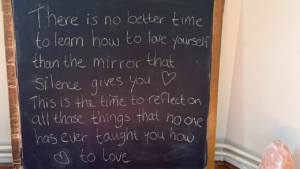 There is no better time
to learn how to love yourself
than the mirror that
silence gives you ♡
This is the time to reflect on
all those things that no one
has ever taught you how
♡ to love